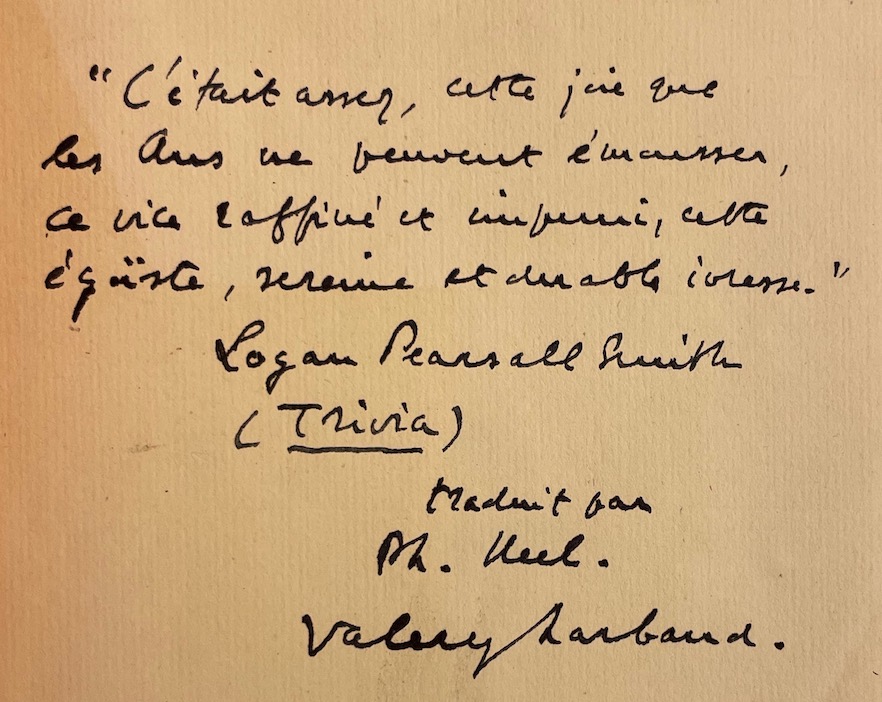 "C'était assez, cette joie que
les Ans ne peuvent émousser,
ce vice raffiné et impuni, cette
égoïste, sereine et durable ivresse."
Logan Pearsall Smith
(Trivia)
traduit par
Ph. Neel.
Valery Larbaud.